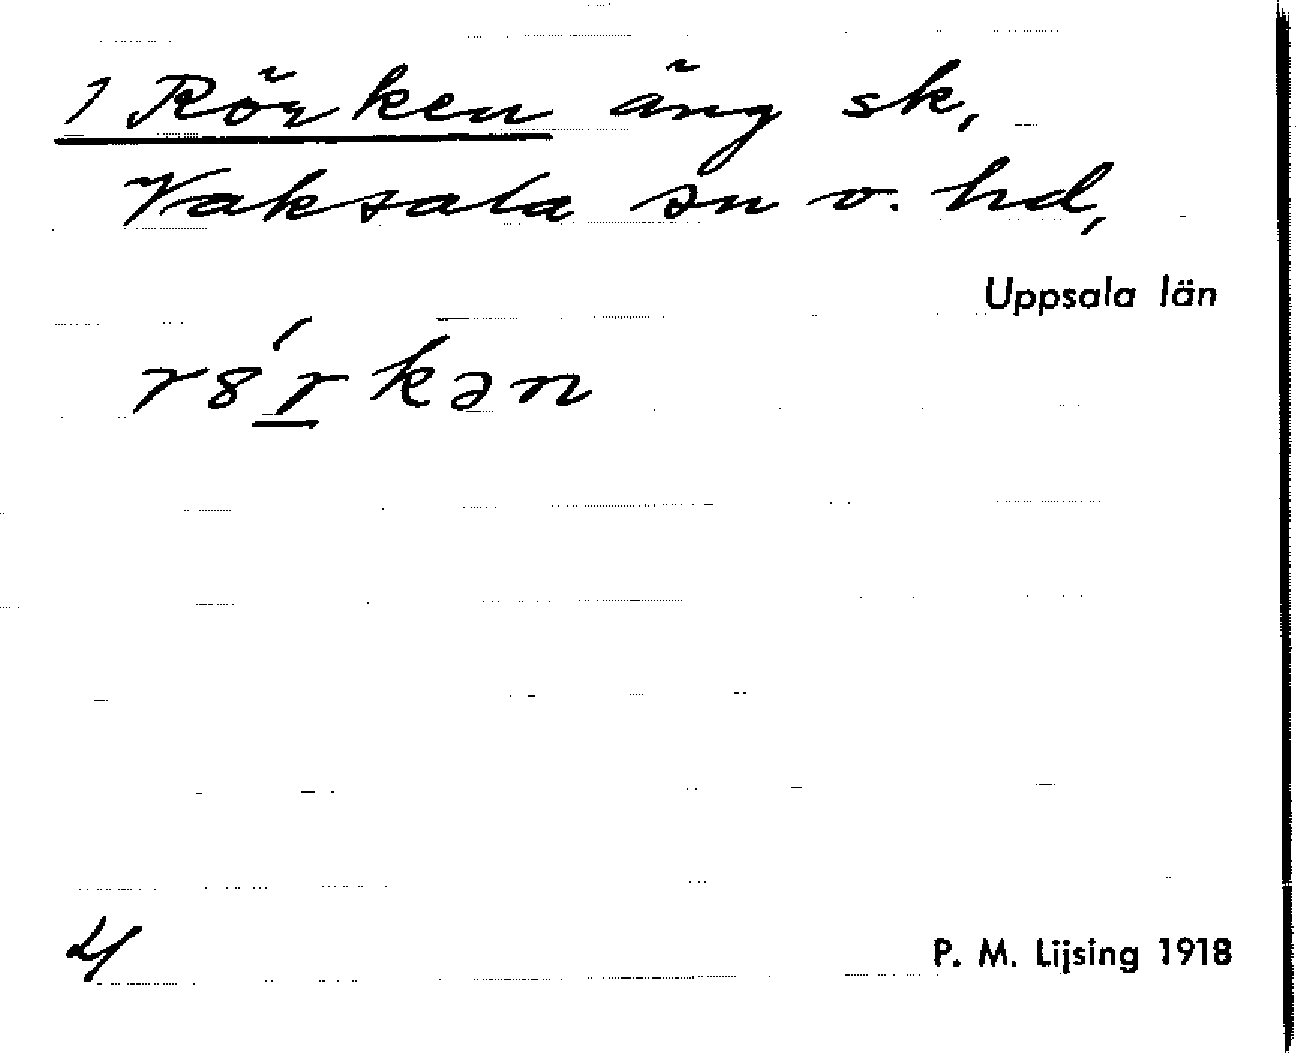 1 Rörken äng sk,
Vaksala sn o. hd,
Uppsala län
r8́r̲kən
4
P. M. Lijsing 1918